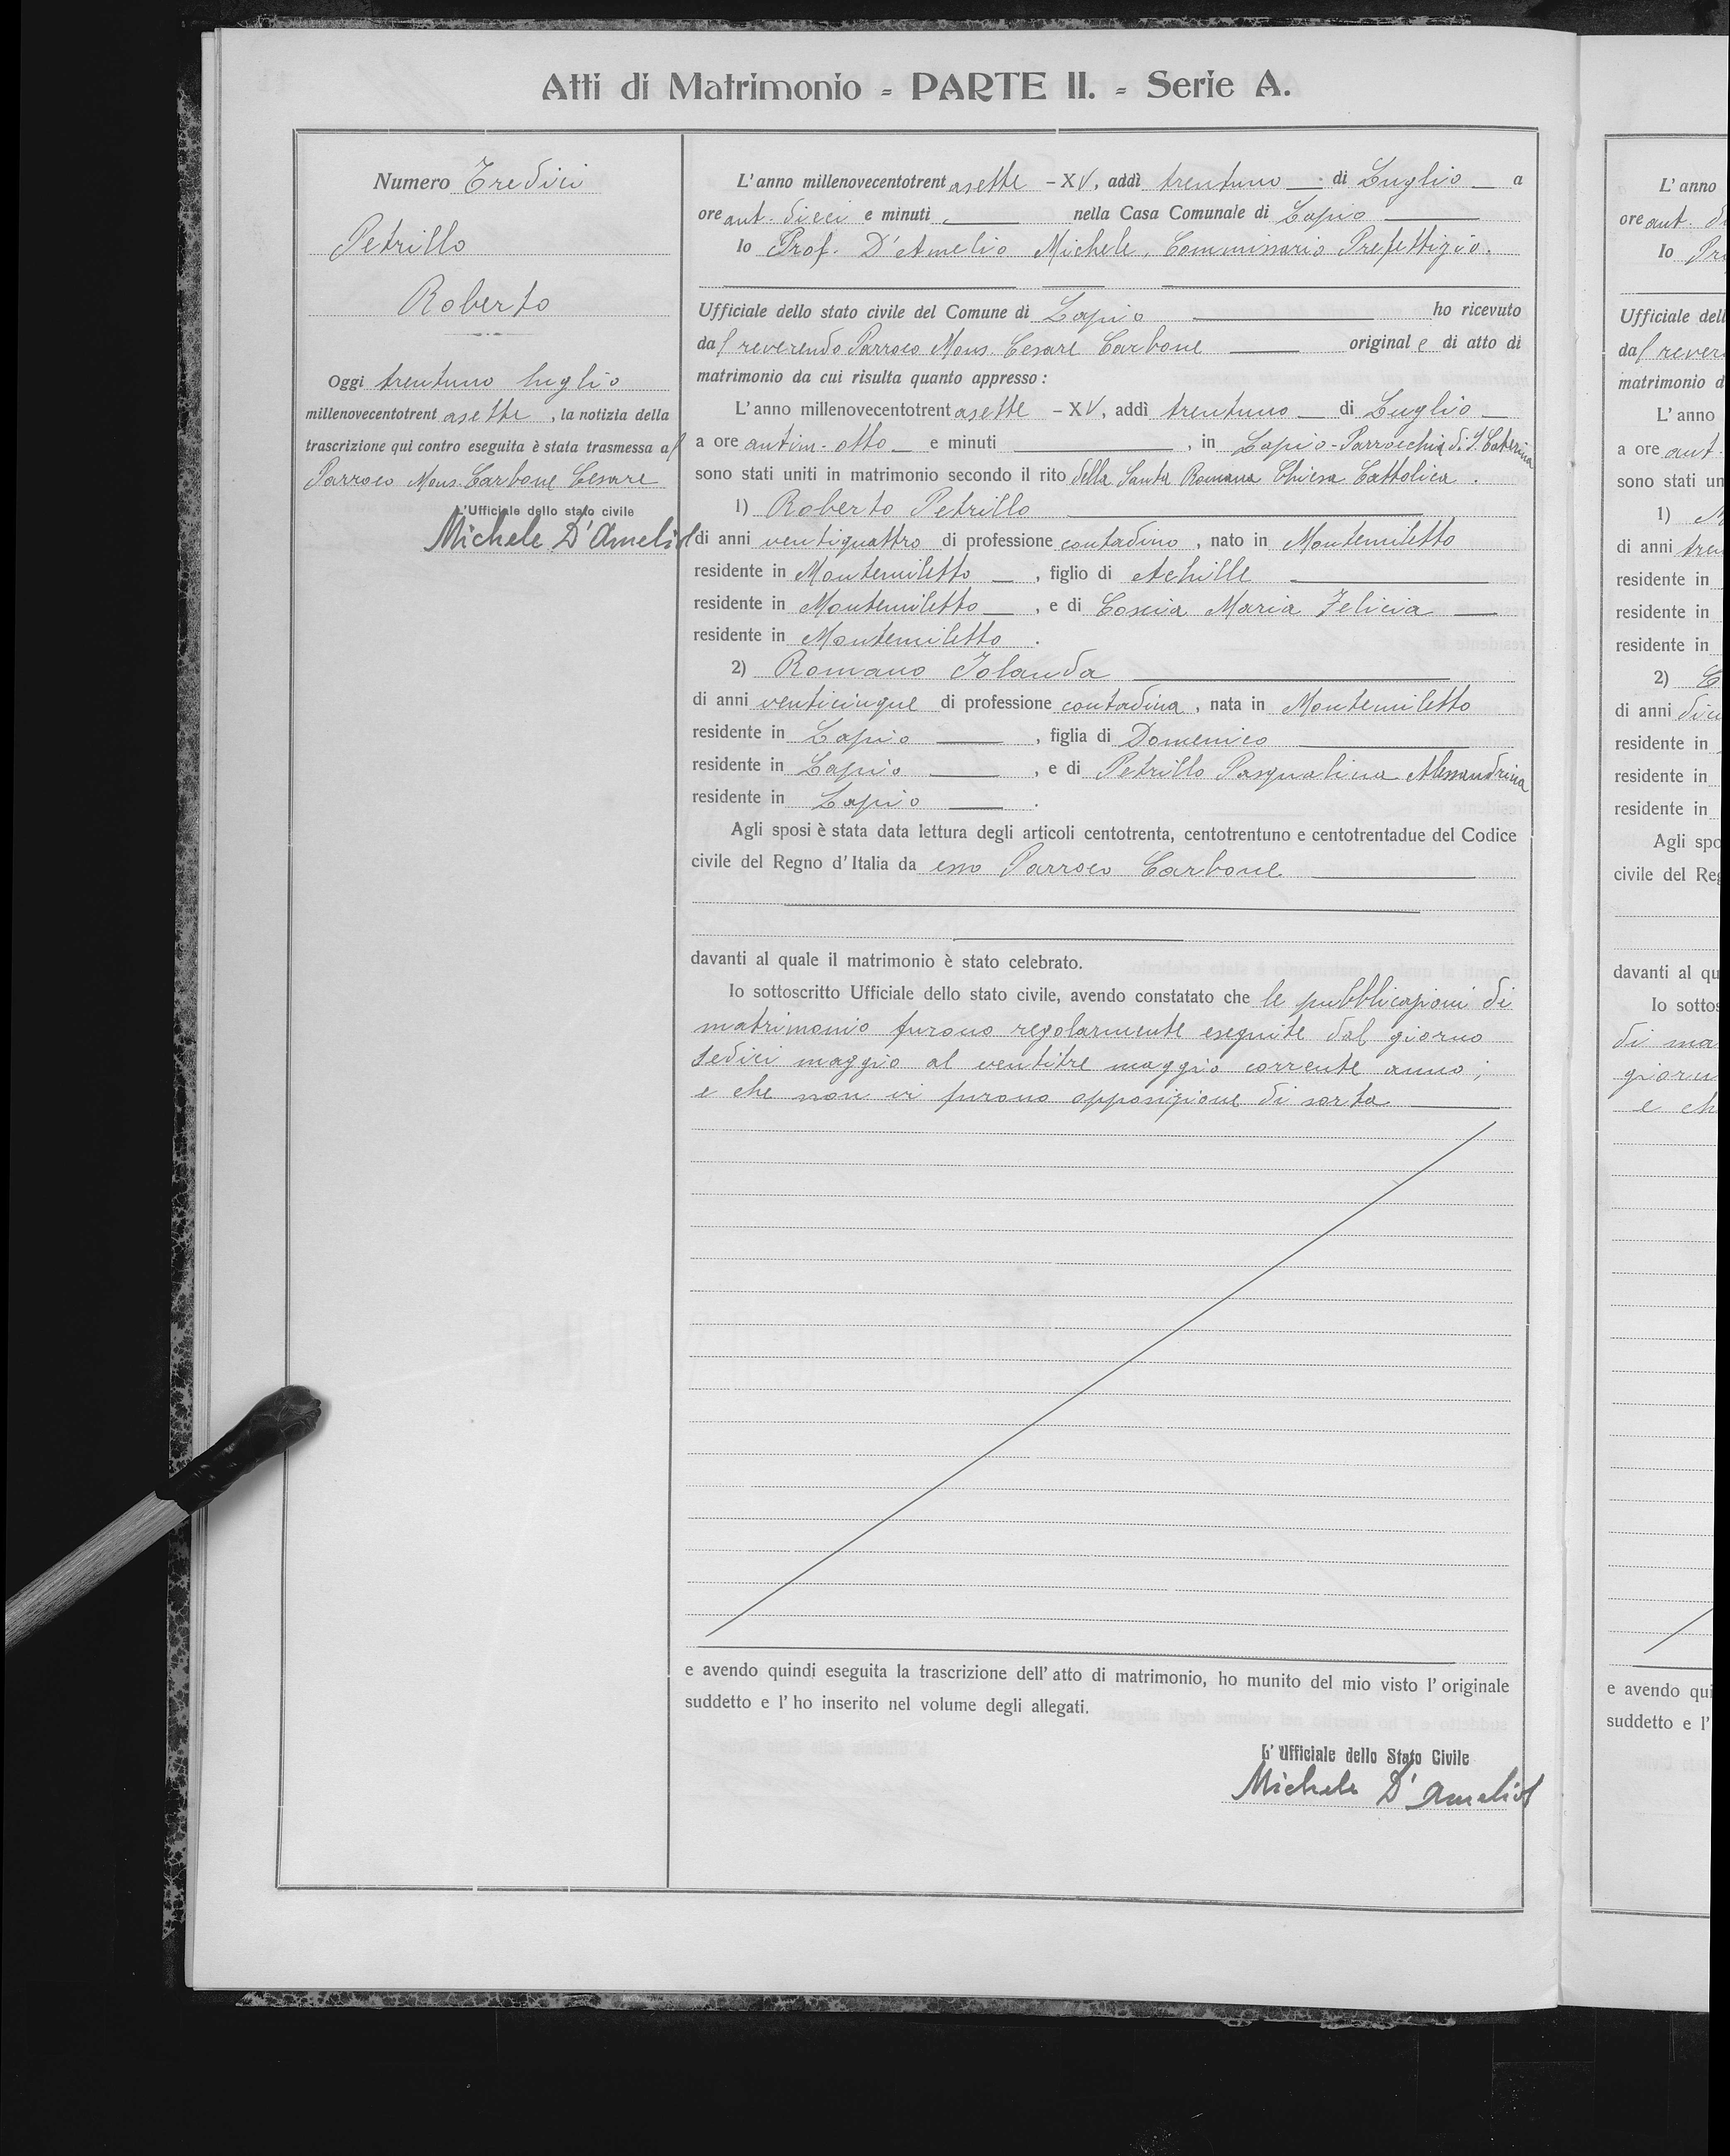 Atti di Matrimonio - PARTE II. - Serie A.
Numero Tredici
Petrillo
Roberto
Oggi trentuno luglio
millenovecentotrentasette, la notizia della
trascrizione qui contro eseguita è stata trasmessa al
Parroco Mons. Carbone Cesare
L'Ufficiale dello stato civile
Michele D'Amelio
L'anno millenovecentotrentasette - XV, addì trentuno di Luglio a
ore ant. dieci e minuti nella Casa Comunale di Lapio
Io Prof. D'Amelio Michele, Commissario Prefettizio.
Ufficiale dello stato civile del Comune di Lapio ho ricevuto
dal reverendo Parroco Mons. Cesare Carbone originale di atto di
matrimonio da cui risulta quanto appresso:
L'anno millenovecentotrentasette - XV, addì trentuno di Luglio
a ore antim. otto e minuti , in Lapio - Parrocchia di S. Caterina
sono stati uniti in matrimonio secondo il rito della Santa Romana Chiesa Cattolica.
1) Roberto Petrillo
di anni ventiquattro di professione contadino, nato in Montemiletto
residente in Montemiletto, figlio di Achille
residente in Montemiletto, e di Coscia Maria Felicia
residente in Montemiletto.
2) Romano Iolanda
di anni venticinque di professione contadina, nata in Montemiletto
residente in Lapio, figlia di Domenico
residente in Lapio, e di Petrillo Pasqualina Alessandrina
residente in Lapio.
Agli sposi è stata data lettura degli articoli centotrenta, centotrentuno e centotrentadue del Codice
civile del Regno d'Italia da esso Parroco Carbone
davanti al quale il matrimonio è stato celebrato.
Io sottoscritto Ufficiale dello stato civile, avendo constatato che le pubblicazioni di
matrimonio furono regolarmente eseguite dal giorno
sedici maggio al ventitre maggio corrente anno;
e che non vi furono opposizione di sorta
e avendo quindi eseguita la trascrizione dell'atto di matrimonio, ho munito del mio visto l'originale
suddetto e l'ho inserito nel volume degli allegati.
L'Ufficiale dello Stato Civile
Michele D'Amelio
L'anno
ore ant.
Io
Ufficiale dell
dal
matrimonio d
L'anno
a ore ant.
sono stati un
1)
di anni
residente in
residente in
residente in
2)
di anni
residente in
residente in
residente in
Agli spo
civile del Reg
davanti al qu
Io sottos
di ma
e ch
e avendo qui
suddetto e l'